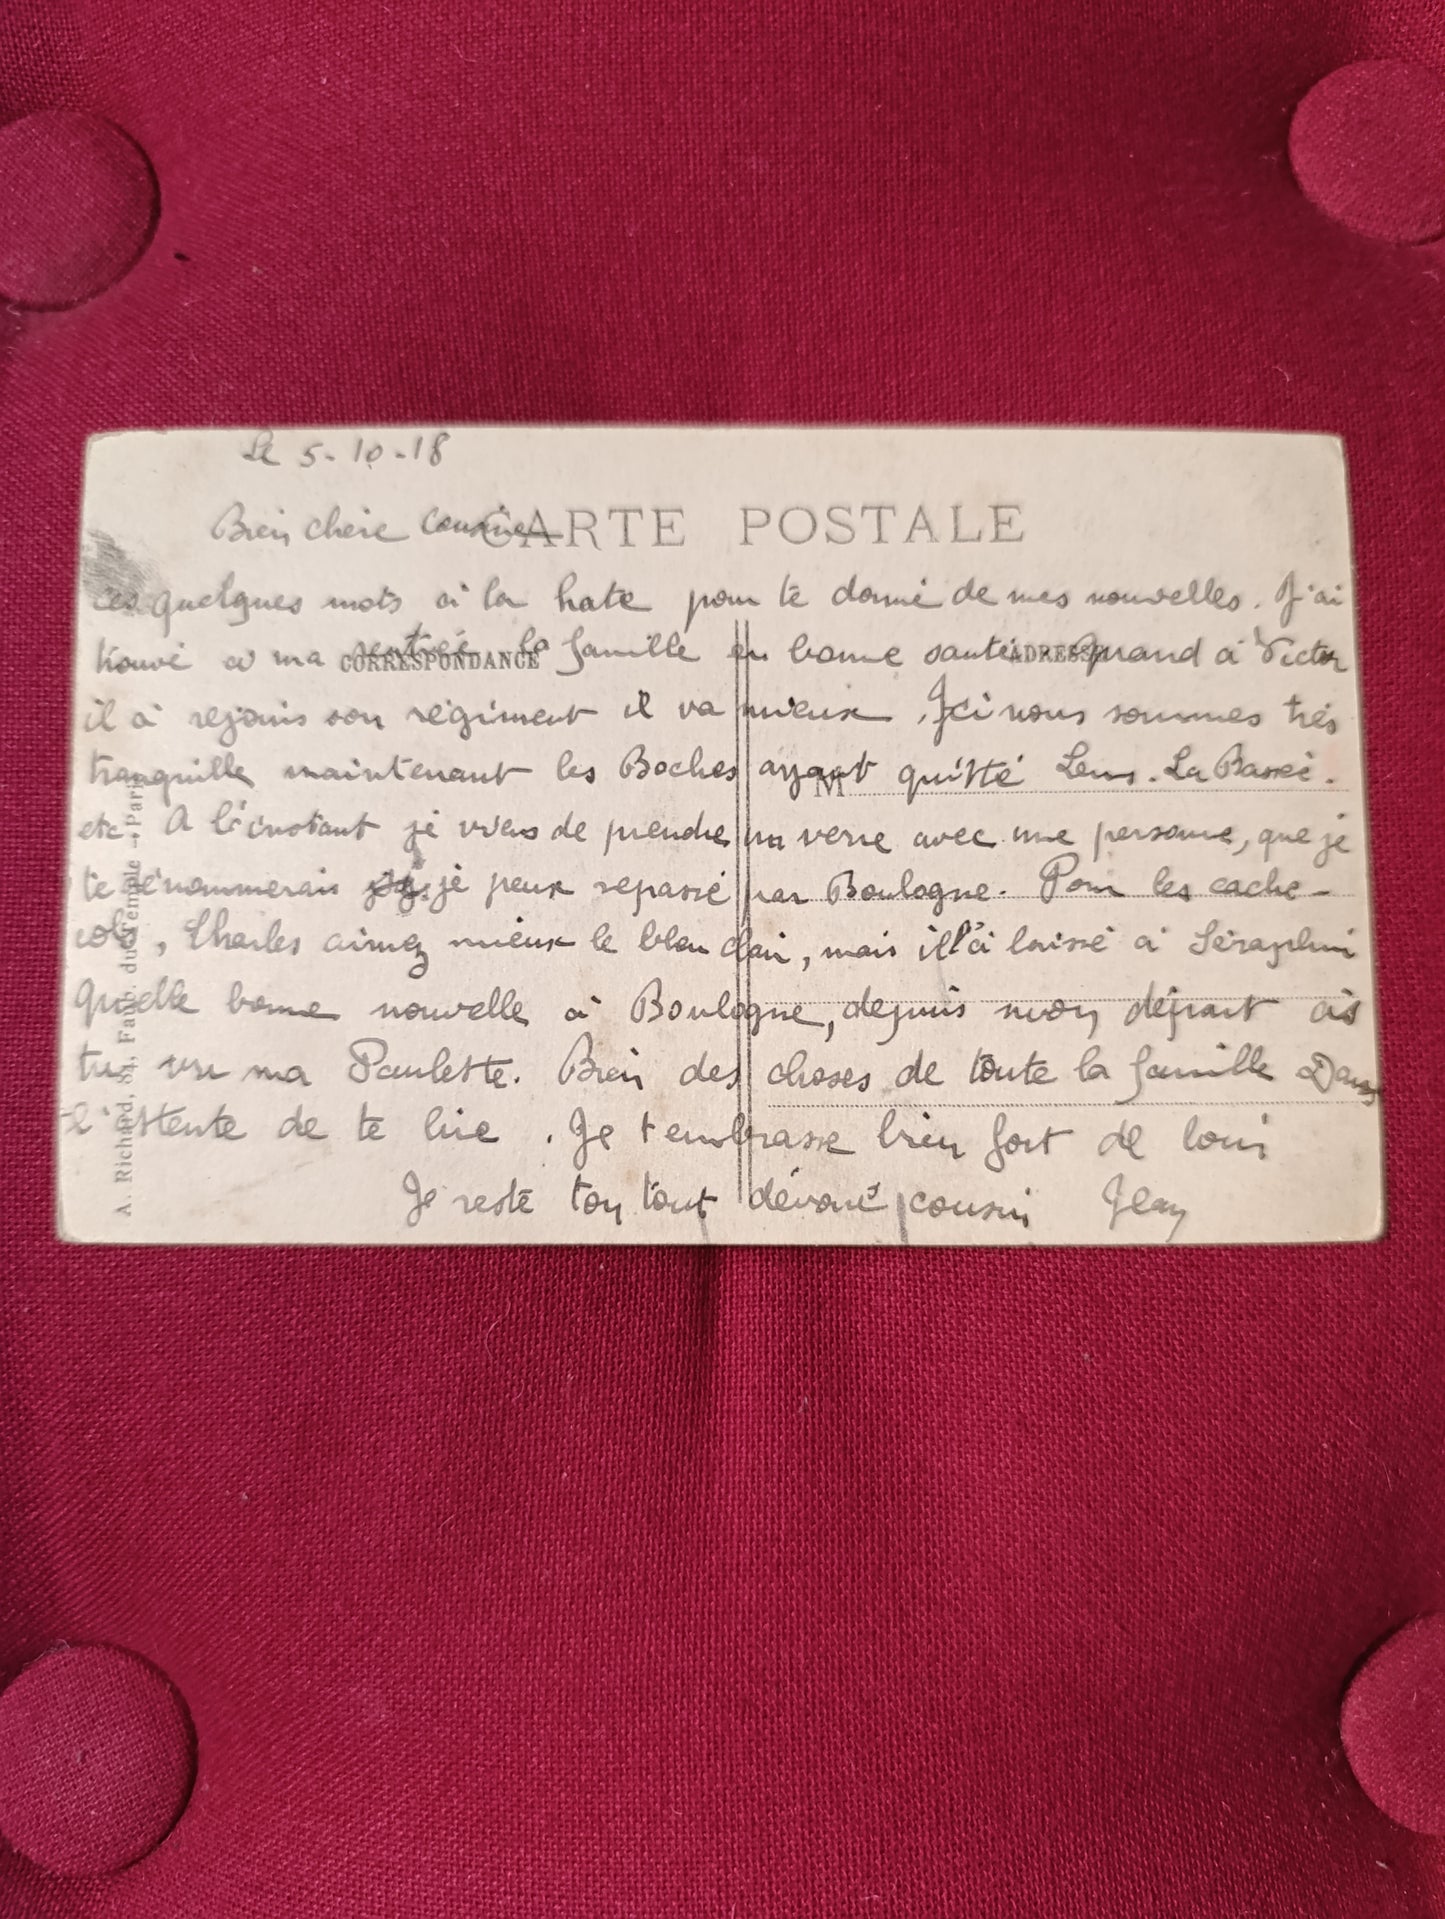 Le 5-10-18
CARTE POSTALE
Bien chère Cousine
ces quelques mots à la hate pour te donné de mes nouvelles. J'ai
trouvé a ma rentrée la famille en bonne santé. quand à Victor
CORRESPONDANCE
ADRESSE
il à rejoins son régiment il va mieux. Ici nous sommes très
tranquille maintenant les Boches ayant quitté Lens. La Bassé.
M
etc. A l'instant je viens de prendre un verre avec une personne, que je
te dénommerais si je peux repassé par Boulogne. Pour les cache-
col, Charles aimez mieux le bleu clair, mais il l'à laissé à Séraphin
Quelle bonne nouvelle à Boulogne, depuis mon départ as
tu vu ma Paulette. Bien des choses de toute la famille Dans
l'attente de te lire. Je t'embrasse bien fort de loin
Je reste ton tout dévoué cousin Jean
A. Richard, 84, Faub. du Temple - Paris